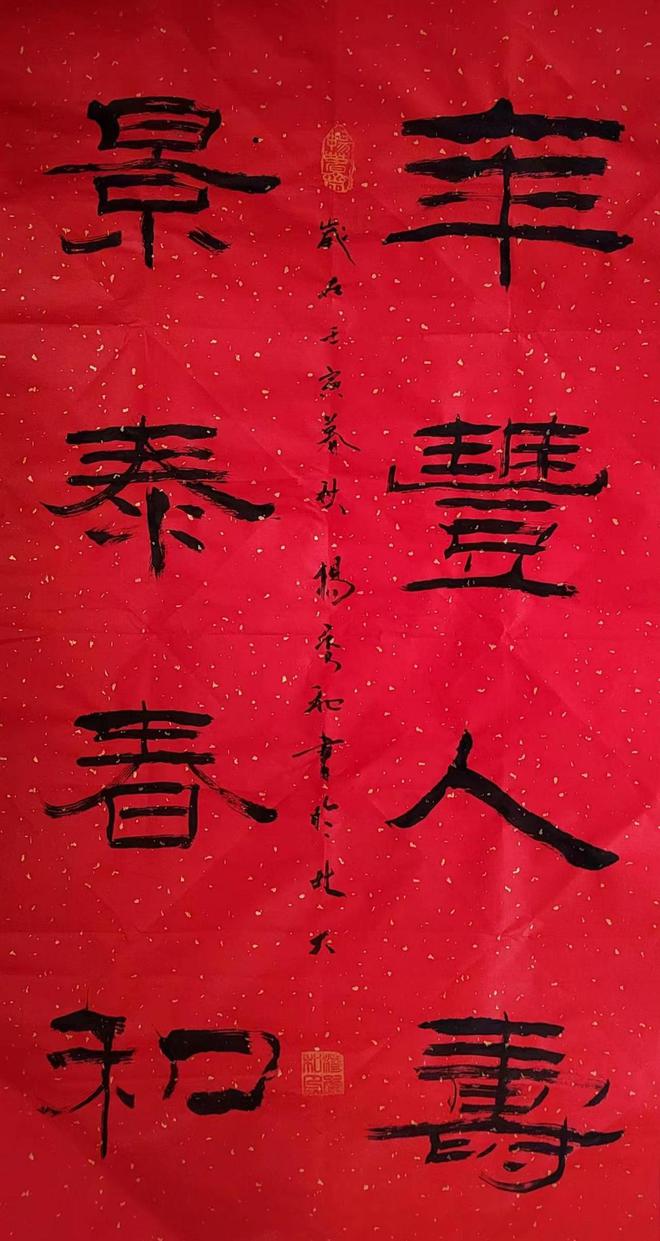 年豐人壽
歲在壬寅暮秋楊秀和書於北大
景泰春和